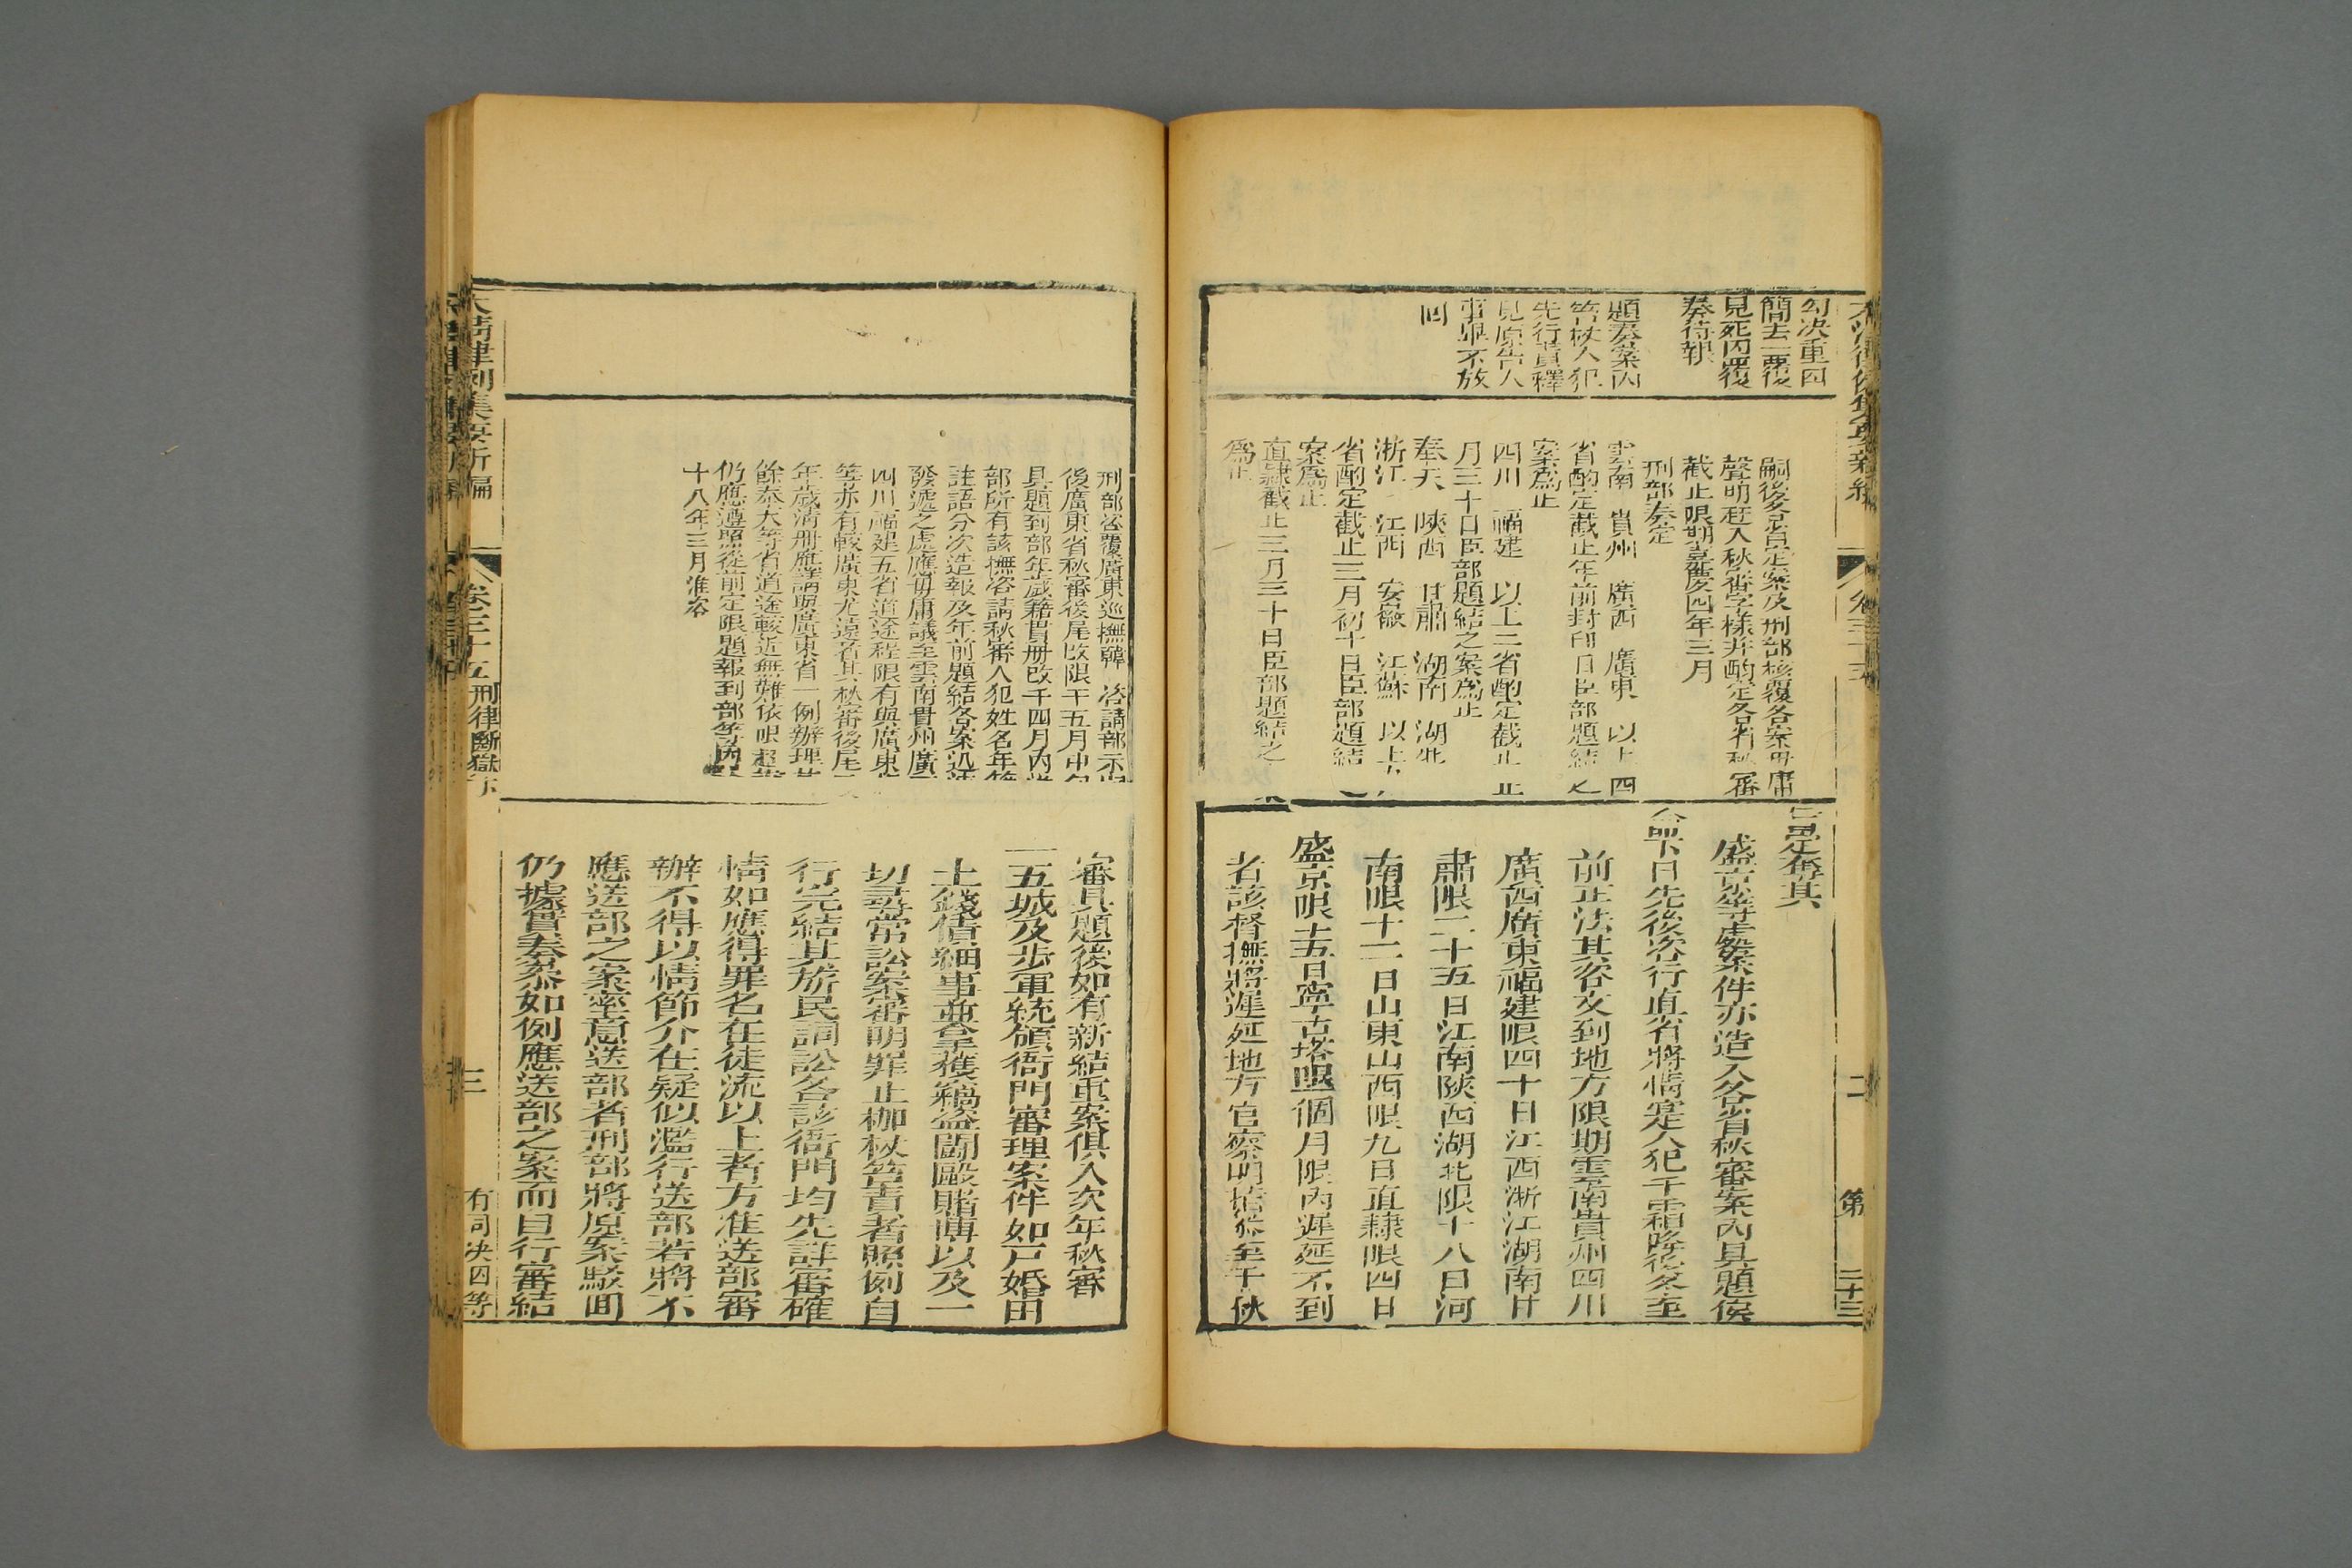 勾决重囚
簡去一覆後
見死囚覆
奏待報
題奏案內
笞杖人犯
先行責釋
見原告人
事畢不放
回
嗣後各省定案及刑部核覆各案毋庸
聲明赶入秋審字樣并酌定各省秋審
截止限期嘉慶四年三月
刑部奏定
雲南 貴州 廣西 廣東 以上四
省酌定截止年前封印日臣部題結之
案爲止
四川 福建 以上二省酌定截止正
月三十日臣部題結之案爲止
奉天 陝西 甘肅 湖南 湖北
浙江 江西 安徽 江蘇 以上九
省酌定截止二月初十日臣部題結之
案爲止
直隸截止三月三十日臣部題結之案
爲止
旨定奪其
盛京等處案件亦造入各省秋審案內具題俟
命下日先後咨行直省將情實人犯于霜降後冬至
前正法其咨文到地方限期雲南貴州四川
廣西廣東福建限四十日江西浙江湖南甘
肅限二十五日江南陝西湖北限十八日河
南限十二日山東山西限九日直隸限四日
盛京限十五日寧古塔限一個月限內遲延不到
者該督撫將遲延地方官察明指參至于秋
大清律例集要新編
卷三十五
刑律斷獄下
三
有司决囚等第
刑部咨覆廣東巡撫韓 咨請部示嗣
後廣東省秋審後尾改限于五月中旬
具題到部年歲籍貫册改于四月內送
部所有該撫咨請秋審人犯姓名年籍
註語分次造報及年前題結各案迅速
發遞之處應毋庸議至雲南貴州廣西
四川福建五省道途程限有與廣東
等亦有較廣東尤遠者其秋審後尾
年歲清册應請照廣東省一例辦理其
餘奉天等省道途較近無難依限趕辦
仍應遵照從前定限題報到部等因
十八年三月准咨
審具題後如有新結重案俱入次年秋審
一五城及步軍統領衙門審理案件如戶婚田
土錢債細事並拿獲竊盜鬭毆賭博以及一
切尋常訟案審明罪止枷杖笞責者照例自
行完結其旂民詞訟各該衙門均先詳審確
情如應得罪名在徒流以上者方准送部審
辦不得以情節介在疑似濫行送部若將不
應送部之案率意送部者刑部將原案駁回
仍據實奏參如例應送部之案而自行審結